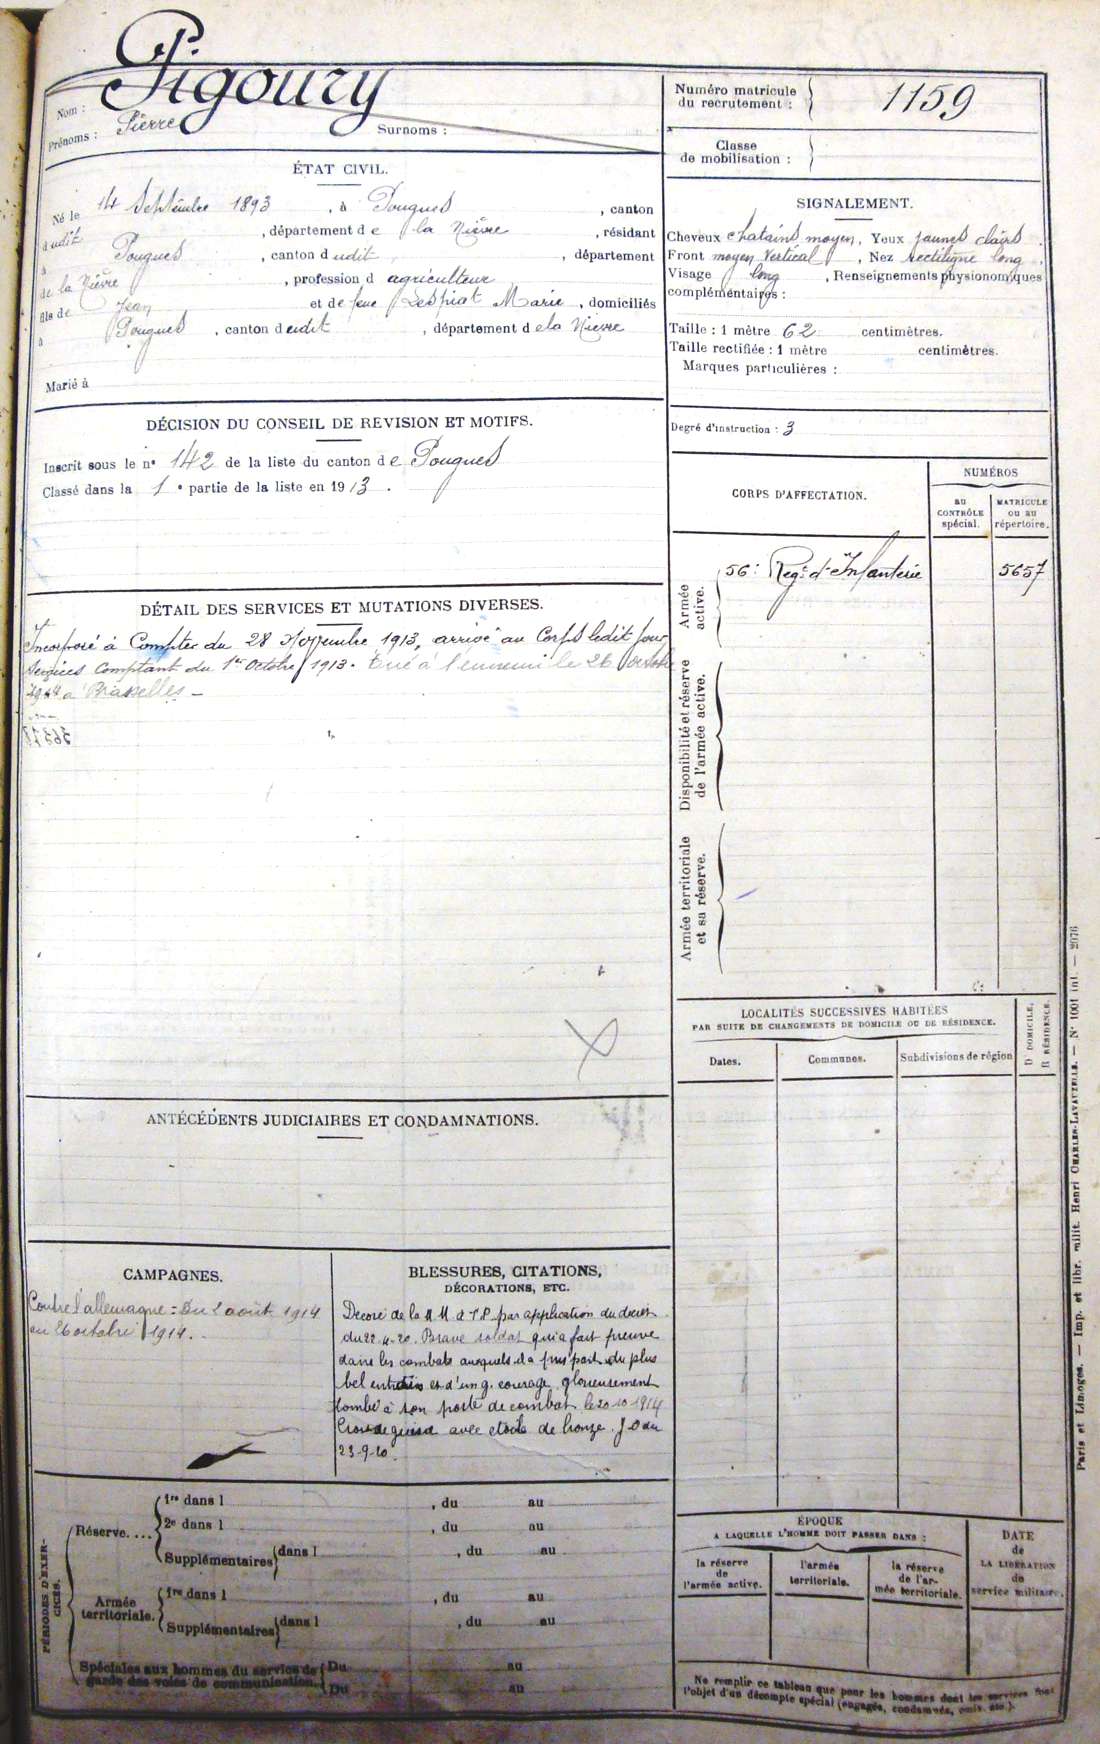 Nom : Pigoury
Numéro matricule
du recrutement :
1159
Prénoms : Pierre
Surnoms :
Classe
de mobilisation :
ÉTAT CIVIL.
Né le 14 Septembre 1893 , à Pougues , canton
dudit , département de la Nièvre , résidant
à Pougues , canton dudit , département
de la Nièvre , profession d agriculteur
fils de Jean et de feue Lespiat Marie , domiciliés
à Pougues , canton dudit , département de la Nièvre
Marié à
SIGNALEMENT.
Cheveux chatains moyen, Yeux jaunes clairs .
Front moyen Vertical , Nez rectiligne long ,
Visage long , Renseignements physionomiques
complémentaires :
Taille : 1 mètre 62 centimètres.
Taille rectifiée : 1 mètre centimètres.
Marques particulières :
Degré d'instruction : 3
DÉCISION DU CONSEIL DE REVISION ET MOTIFS.
Inscrit sous le n° 142 de la liste du canton de Pougues
Classé dans la 1e partie de la liste en 1913 .
CORPS D'AFFECTATION.
NUMÉROS
au
CONTRÔLE
spécial.
MATRICULE
ou au
répertoire.
Armée
active.
56e Regt d'Infanterie
5657
Disponibilité et réserve
de l'armée active.
Armée territoriale
et sa réserve.
DÉTAIL DES SERVICES ET MUTATIONS DIVERSES.
Incorporé à Compter du 28 Novembre 1913, arrivé au Corps ledit jour
Services Comptant du 1er Octobre 1913. tué à l'ennemi le 26 octobre
1914 à
LOCALITÉS SUCCESSIVES HABITÉES
PAR SUITE DE CHANGEMENTS DE DOMICILE OU DE RÉSIDENCE.
Dates.
Communes.
Subdivisions de région
D DOMICILE,
R RÉSIDENCE.
ANTÉCÉDENTS JUDICIAIRES ET CONDAMNATIONS.
CAMPAGNES.
Contre l'allemagne : Du 2 août 1914
au 26 octobre 1914.
BLESSURES, CITATIONS,
DÉCORATIONS, ETC.
Decoré de la M M à T P par application du decret
du 22-4-20. Brave soldat qui a fait preuve
dans les combats auxquels il a pris part du plus
bel entrain et d'un g. courage glorieusement
tombé à son poste de combat le 20-10 1914
Croix de guerre avec etoile de bronze. J O du
23-9-20
PÉRIODES D'EXERCICES.
Réserve....
1re dans l , du au
2e dans l , du au
Supplémentaires dans l , du au
Armée
territoriale.
1re dans l , du au
Supplémentaires dans l , du au
Spéciales aux hommes du service de
garde des voies de communication.
Du au
Du au
ÉPOQUE
A LAQUELLE L'HOMME DOIT PASSER DANS :
la réserve
de
l'armée active.
l'armée
territoriale.
la réserve
de l'ar-
mée territoriale.
DATE
de
LA LIBÉRATION
du
service militaire.
Ne remplir ce tableau que pour les hommes dont les services font
l'objet d'un décompte spécial (engagés, condamnés, omis, etc.).
Paris et Limoges. — Imp. et libr. milit. Henri CHARLES-LAVAUZELLE. — N° 1001 int. — 2076